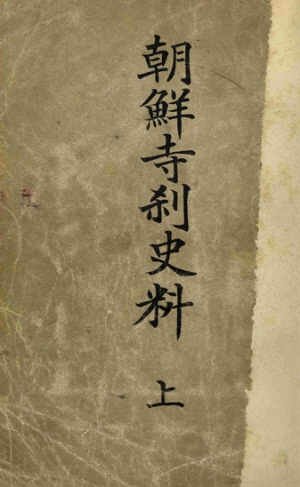 朝鮮寺刹史料 上